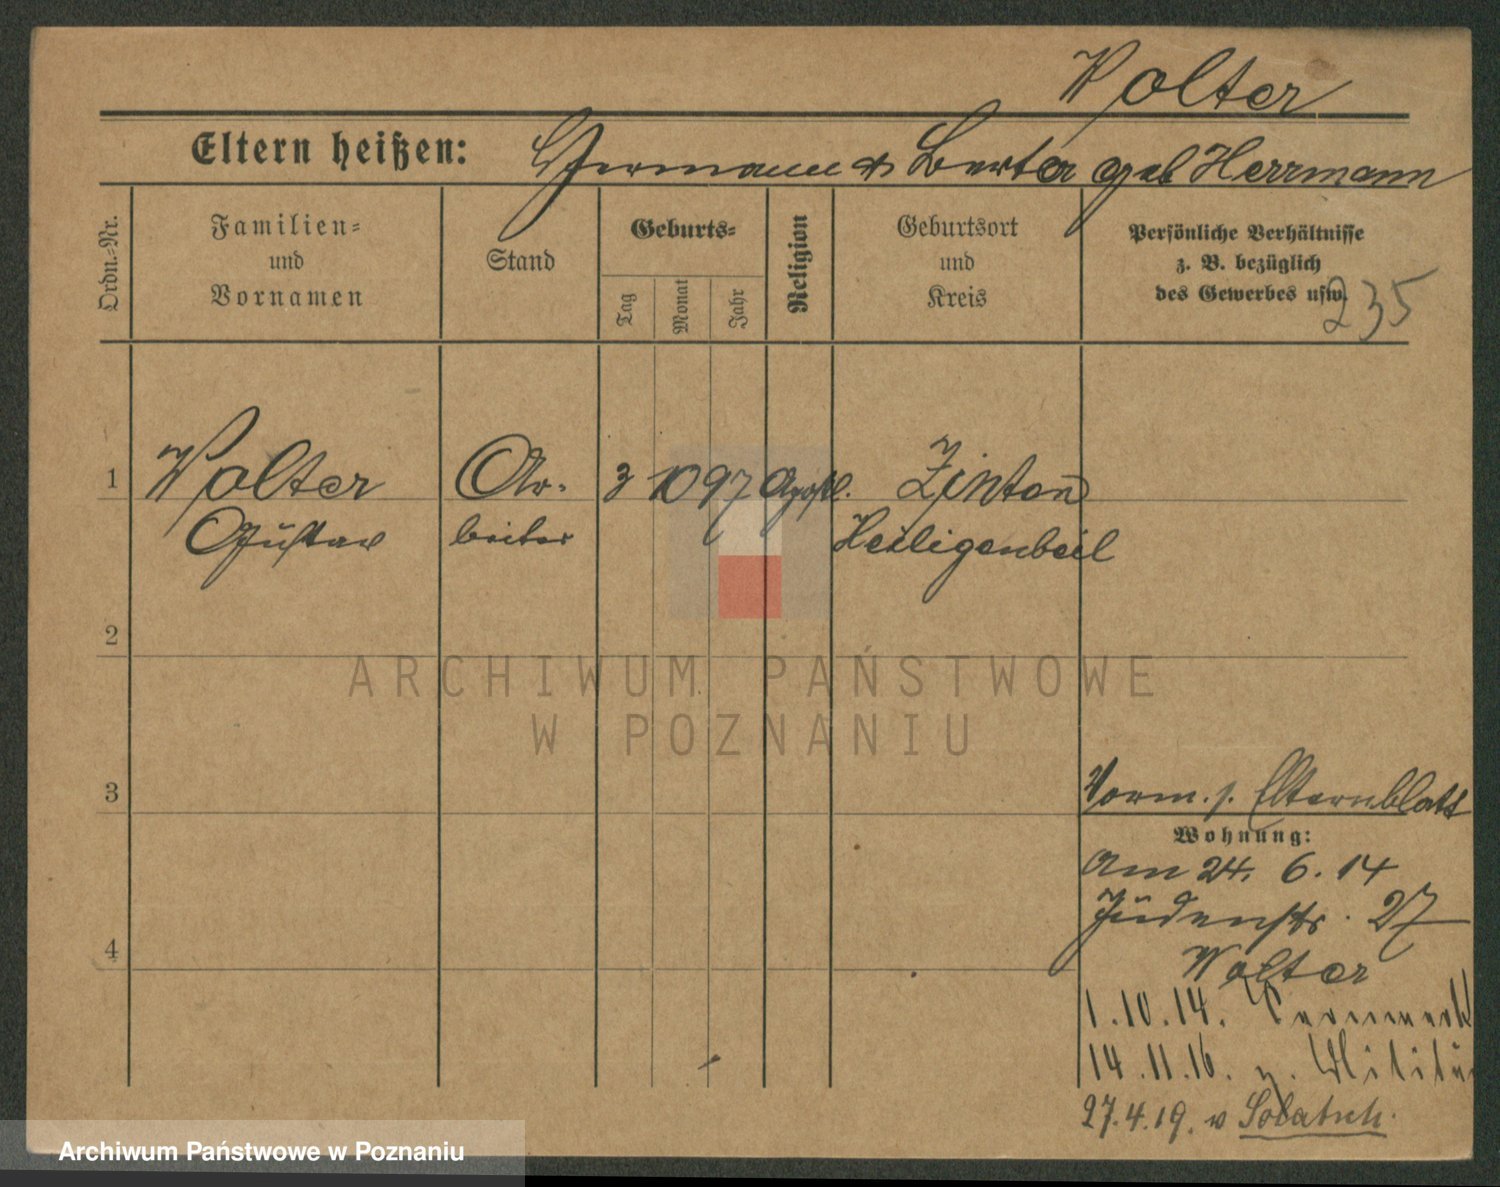 Wolter
Eltern heißen: Hermann & Berta geb Herrmann
Ordn.-Nr.
Familien-
und
Vornamen
Stand
Geburts-
Tag
Monat
Jahr
Religion
Geburtsort
und
Kreis
Persönliche Verhältnisse
z. B. bezüglich
des Gewerbes usw.
235
1 Wolter Ar- 3 10 97 Apostl. Zinten
Gustav beiter Heiligenbeil
2
ARCHIWUM PAŃSTWOWE
W POZNANIU
3
Vorm. s. Elternblatt
Wohnung:
Am 24. 6. 14
Judenstr. 27
4
Wolter
1.10.14.
14.11.16. z. Militär
27.4.19. v
Archiwum Państwowe w Poznaniu